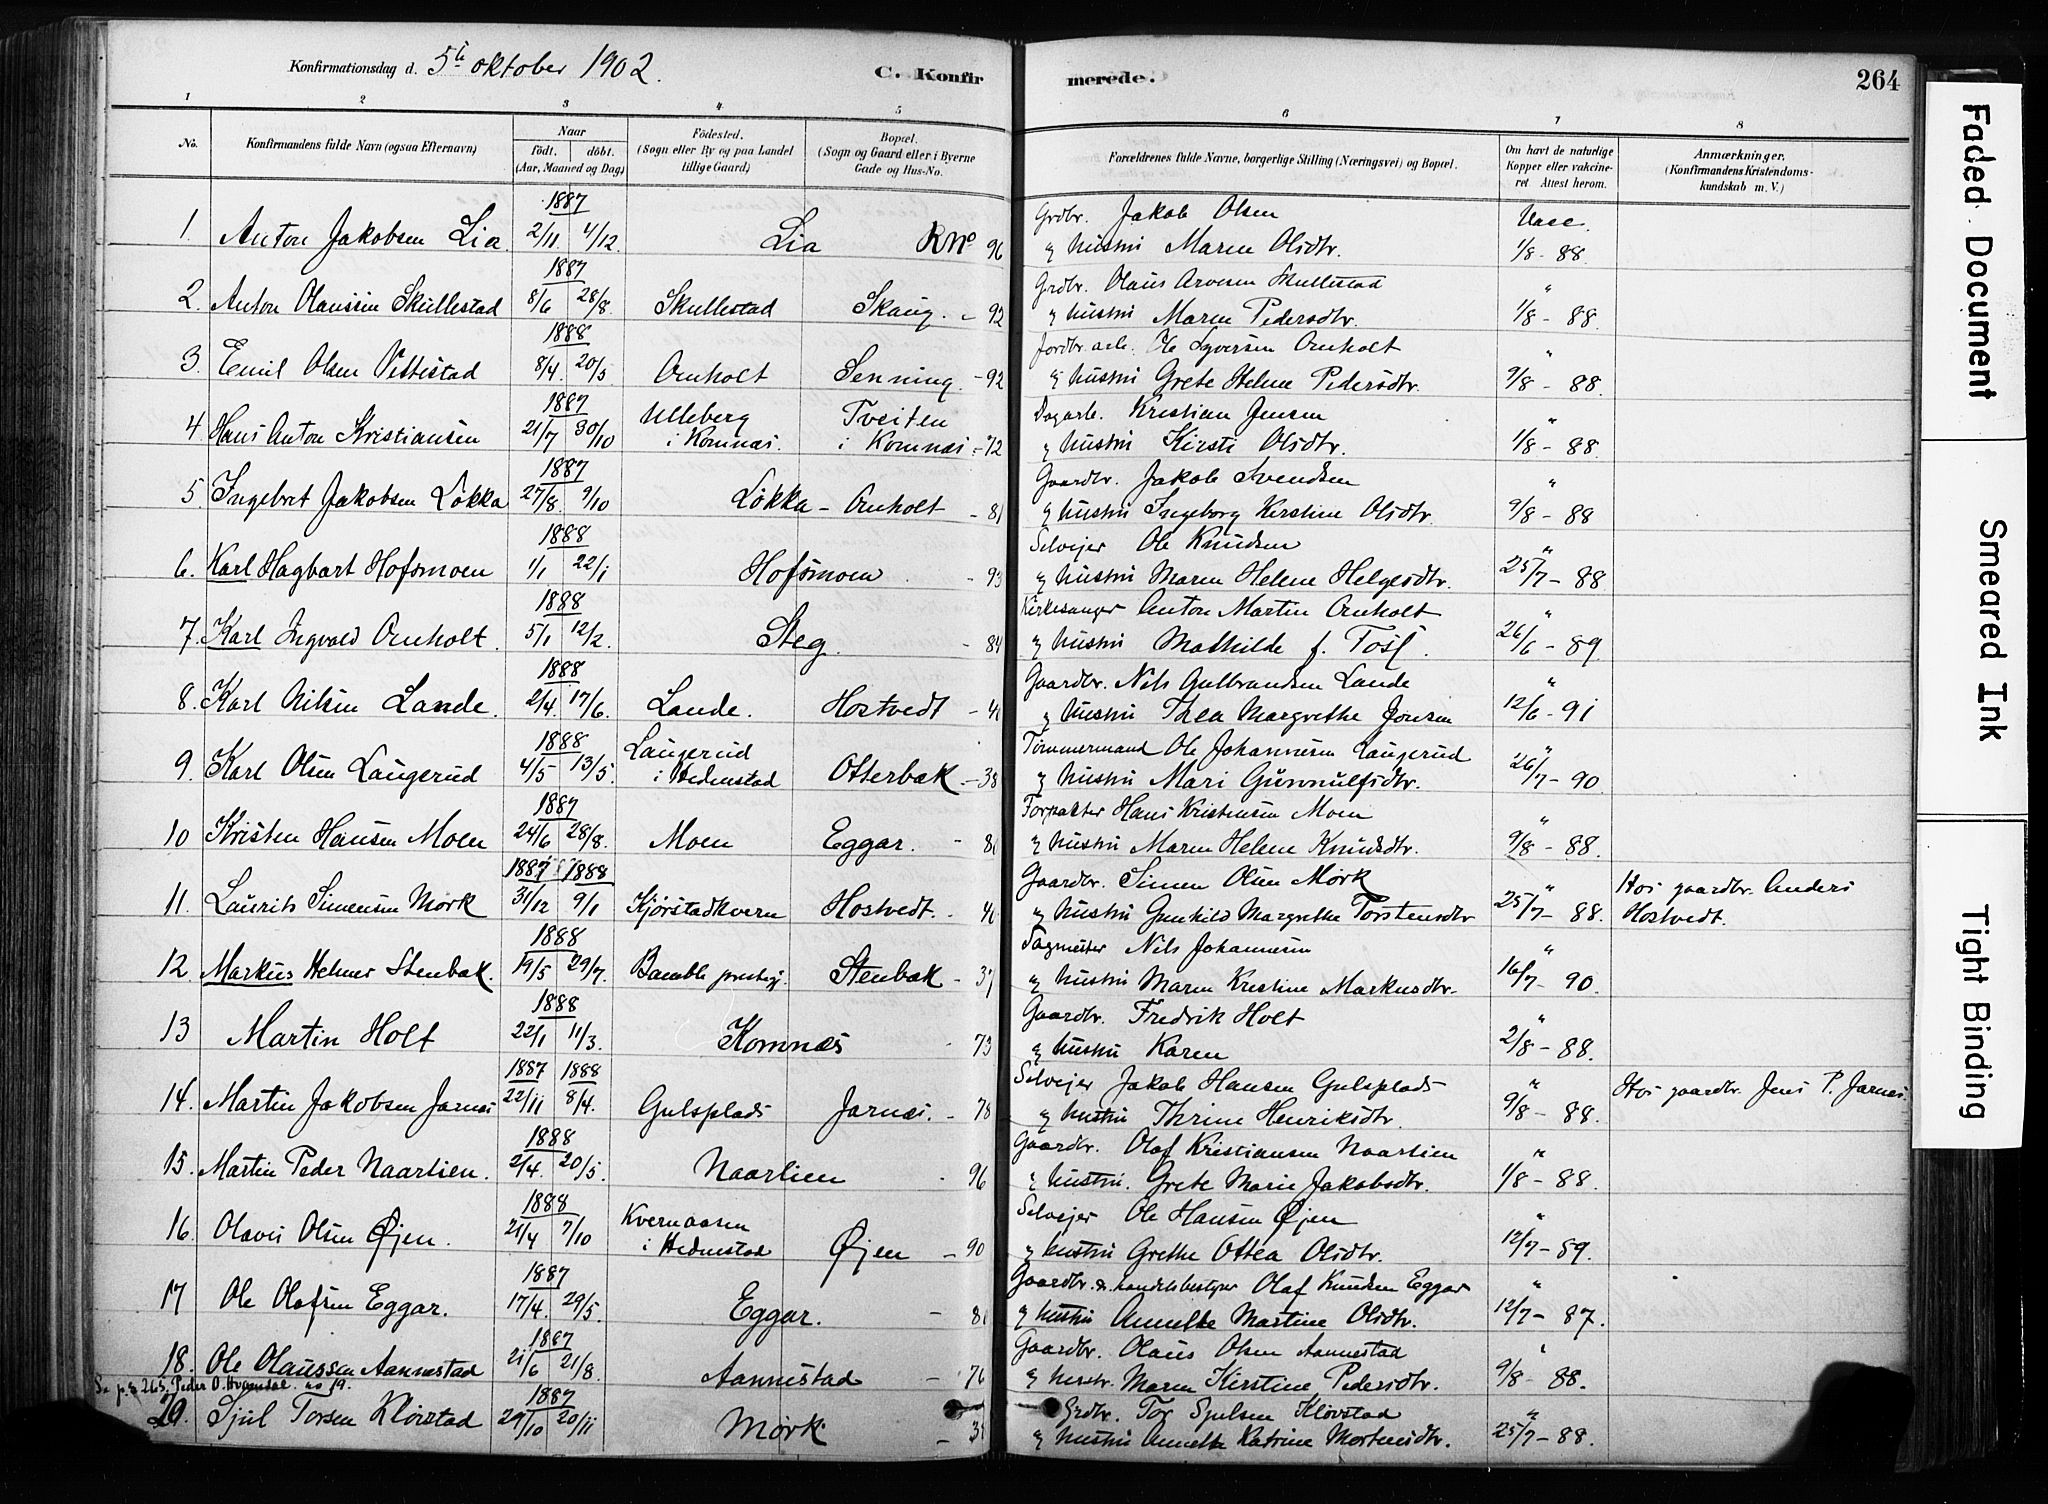 Konfirmationsdag d. 5te oktober 1902.
C. Konfir merede.
264
1 2 3 4 5 6 7 8
No.
Konfirmandens fulde Navn (ogsaa Efternavn)
Naar
født. døbt.
(Aar, Maaned og Dag)
Fødested.
(Sogn eller By og paa Landet
tillige Gaard)
Bopæl.
(Sogn og Gaard eller i Byerne
Gade og Hus-No.
Forældrenes fulde Navne, borgerlige Stilling (Næringsvei) og Bopæl.
Om havt de naturlige
Kopper eller vakcine-
ret Attest herom.
Anmærkninger.
(Konfirmandens Kristendoms-
kundskab m. V.)
1887 Grdbr. Jakob Olsen Vacc.
1. Anton Jakobsen Lia 2/11 4/12. Lia RNo 96 & hustru Maren Olsdtr. 1/8 - 88.
1887 Grdbr. Olaus Arvesen Skullestad "
2. Anton Olaussen Skullestad 8/6 28/8. Skullestad Skaug. - 92 & hustru Maren Pedersdtr. 1/8 - 88.
1888 Jordbr. arb. Ole Syversen Ornholt "
3. Emil Olsen Vettestad 8/4. 20/5 Ornholt Senning. - 92 & hustru Grete Helene Pedersdtr. 9/8 - 88.
1887 Ulleberg Tveiten Dagarb. Kristian Jensen "
4 Hans Anton Kristiansen 21/7 30/10 i Komnæs. i Komnæs. - 72 & hustru Kirsti Olsdtr. 1/8 - 88.
1887 Gaardbr. Jakob Svendsen "
5. Ingebret Jakobsen Løkka 27/8. 9/10 Løkka - Ornholt - 81 & hustru Ingeborg Kirstine Olsdtr. 9/8 - 88
1888 Selveier Ole Knudsen "
6. Karl Hagbart Hofsmoen 1/1 22/1 Hofsmoen - 93 & hustru Maren Helene Helgesdtr. 25/7 - 88
1888 Kirkesanger Anton Martin Ornholt "
7. Karl Ingvald Ornholt. 5/1 12/2. Steg. - 84 & hustru Mathilde f. Tosl. 26/6 - 89
1888 Gaardbr. Nils Gulbrandsen Lande "
8. Karl Nilsen Lande. 2/4. 17/6. Lande. Hostvedt - 40 & hustru Thea Margrethe Jonsen 12/6 - 91
1888 Laugerud Tømmermand Ole Johannesen Laugerud "
9. Karl Olsen Laugerud 4/5 13/5. i Hedenstad Otterbæk - 38 & hustru Mari Gunnulfsdtr. 26/7 - 90
1887 Forpakter Hans Kristensen Moen "
10 Kristen Hansen Moen 24/6 28/8. Moen Eggar. - 81 & hustru Maren Helene Knudsdtr. 9/8 - 88.
1887 1888 Gaardbr. Simen Olsen Mørk " Hos gaardbr. Anders
11. Laurits Simensen Mørk 31/12 9/1 Kjørstadkvern Hostvedt. - 40 & hustru Gunhild Margrethe Torstensdtr 25/7 - 88. Hostvedt.
1888 Sagmester Nils Johannesen "
12. Markus Helmer Stenbæk. 19/5 29/7. Bamble prestegj. Stenbæk - 37 & hustru Maren Kristine Markusdtr. 16/7 - 90.
1888 Gaardbr. Fredrik Holt "
13 Martin Holt 22/1 11/3. Komnæs - 73 & hustru Karen 2/8 - 88.
1887 1888 Selveier Jakob Hansen Gulsplads " Hos gaardbr. Jens P. Jarnæs.
14. Martin Jakobsen Jarnæs 22/11 8/4. Gulsplads Jarnæs. - 78 & hustru Thrine Henriksdtr. 9/8 - 88.
1888 Gaardbr. Olaf Kristiansen Naarlien "
15. Martin Peder Naarlien. 2/4. 20/5 Naarlien - 96 & hustru. Grete Marie Jakobsdtr. 1/8 - 88.
1888 Kvernaasen Selveier Ole Hansen Øjen "
16. Olavus Olsen Øjen. 21/4 7/10 i Hedenstad Øjen - 90 & hustru Grethe Ottea Olsdtr. 12/7 - 89.
1887 Gaardbr. & handelsbestyrer Olaf Knudsen Eggar "
17 Ole Olafsen Eggar. 17/4. 29/5. Eggar. - 81 & hustru Annette Martine Olsdtr. 12/7 - 87.
1887 Gaardbr. Olaus Olsen Aannestad "
18. Ole Olaussen Aannestad 21/6 21/8. Aannestad - 76 & hustr. Maren Kirstine Pedersdtr. 9/8 - 88.
Se p. 265. Peder O. Hvamdal. no 19.
1887 Grdbr. Tor Sjulsen Kløvstad "
20. Sjul Torsen Kløvstad 29/10 20/11 Mørk - 39 & hustru Annette Katrine Mortensdtr. 25/7 - 88.
Faded Document
Smeared Ink
Tight Binding